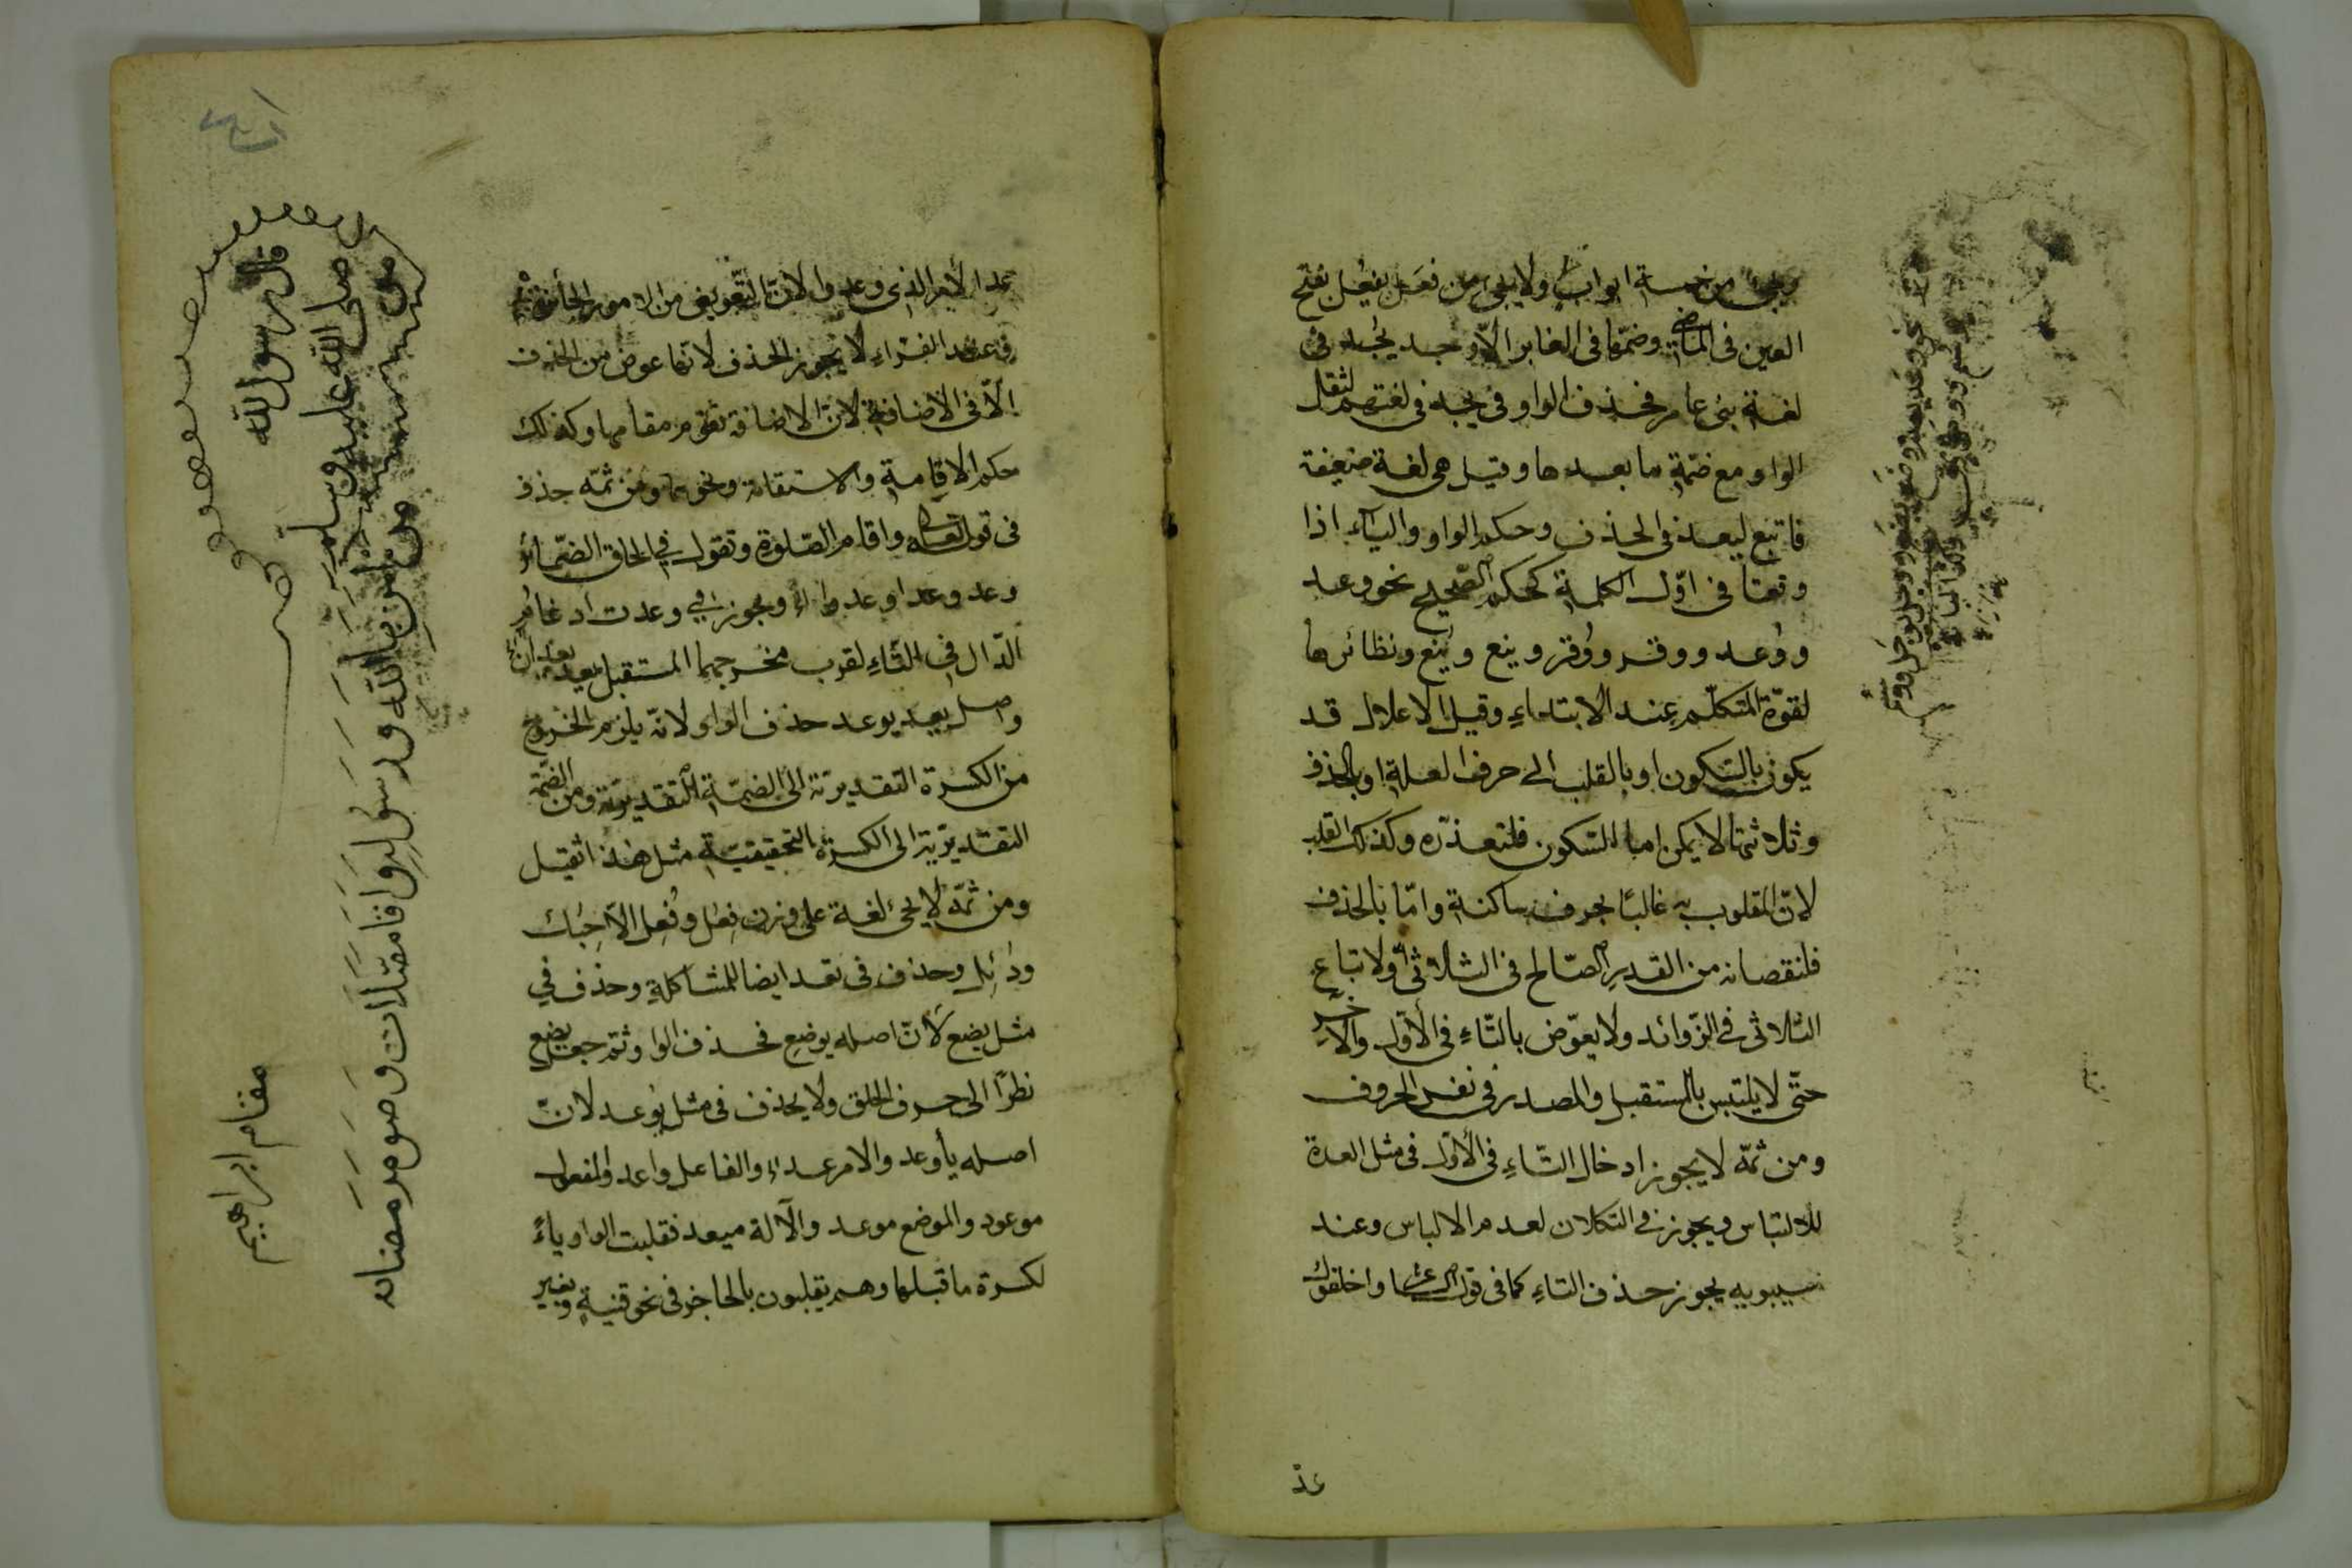 ويجئ من خمسة ابواب ولا يجئ من فعَل يفعُل بفتح
العين فى الماضى وضمّها فى الغابر الّا وجد يجُد فى
لغة بنى عامر فحذف الواو فى يجد فى لغتهم لثقل
الواو مع ضمّة ما بعدها وقيل هى لغة ضعيفة
فاتبع ليعد فى الحذف وحكم الواو والياء اذا
وقعتا فى اوّل الكلمة كحكم الصّحيح نحو وعد
ووُعد ووقر ووُقر وينع ويُنع ونظائرها
لقوّة المتكلّم عند الابتداء وقيل الاعلال قد
يكون بالسّكون او بالقلب الى حرف العلة او بالحذف
وثلاثتها لا يمكن اما السّكون فلتعذّره وكذلك القلب
لانّ المقلوب به غالبًا بحرف ساكنة وامّا بالحذف
فلنقصانه من القدر الصّالح فى الثّلاثى ولاتباع
الثّلاثى فى الزّوائد ولا يعوّض بالتّاءِ فى الاوّل والآخر
حتّى لا يلتبس بالمستقبل والمصدر فى نفس الحروف
ومن ثمّه لا يجوز ادخال التّاءِ فى الاوّل فى مثل العدة
للالتباس ويجوز فى التكلان لعدم الالباس وعند
سيبويه يجوز حذف التاءِ كما فى قول الشاعر واخلفوك
عد
عد الامر الذى وعدوا لانّ التّعويض من الامور الجائزة
وعند الفرّاء لا يجوز الحذف لانّها عوض من الحذف
الّا فى الاضافة لانّ الاضافة تقوم مقامها وكذلك
حكم الاقامة والاستقامة ونحوهما ومن ثمّه حذف
فى قوله تعالى واقام الصّلوة وتقول فى الحاق الضّمائر
وعد وعدا وعدوا الخ ويجوز فى وعدت ادغام
الدّال فى التّاءِ لقرب مخرجهما المستقبل يعد
واصل يعد يوعد حذف الواو لانّه يلزم الخروج
من الكسرة التقديريّة الى الضمّة التقديريّة ومن الضمّة
التقديريّة الى الكسرة التحقيقيّة مثل هذا ثقيل
ومن ثمّه لا يجئ لغة على وزن فِعُل وفُعِل الّا حِبُك
ودُئِل وحذف فى تعد ايضا للمشاكلة وحذف فى
مثل يضع لانّ اصله يوضع فحذف الواو ثمّ جعل يضع
نظرًا الى حرف الحلق ولا يحذف فى مثل يوعد لانّ
اصله يأوعد والامر عد الخ والفاعل واعد والمفعول
موعود والموضع موعد والآلة ميعد فقلبت الواو ياءً
لكسرة ما قبلها وهم يقلبون بالحاجز فى نحو قنية وبغير
قال رسول الله
صلى الله عليه وسلم
من
من امن بالله ورسوله واقام صلات وصوم رمضانه
مقام ابراهيم